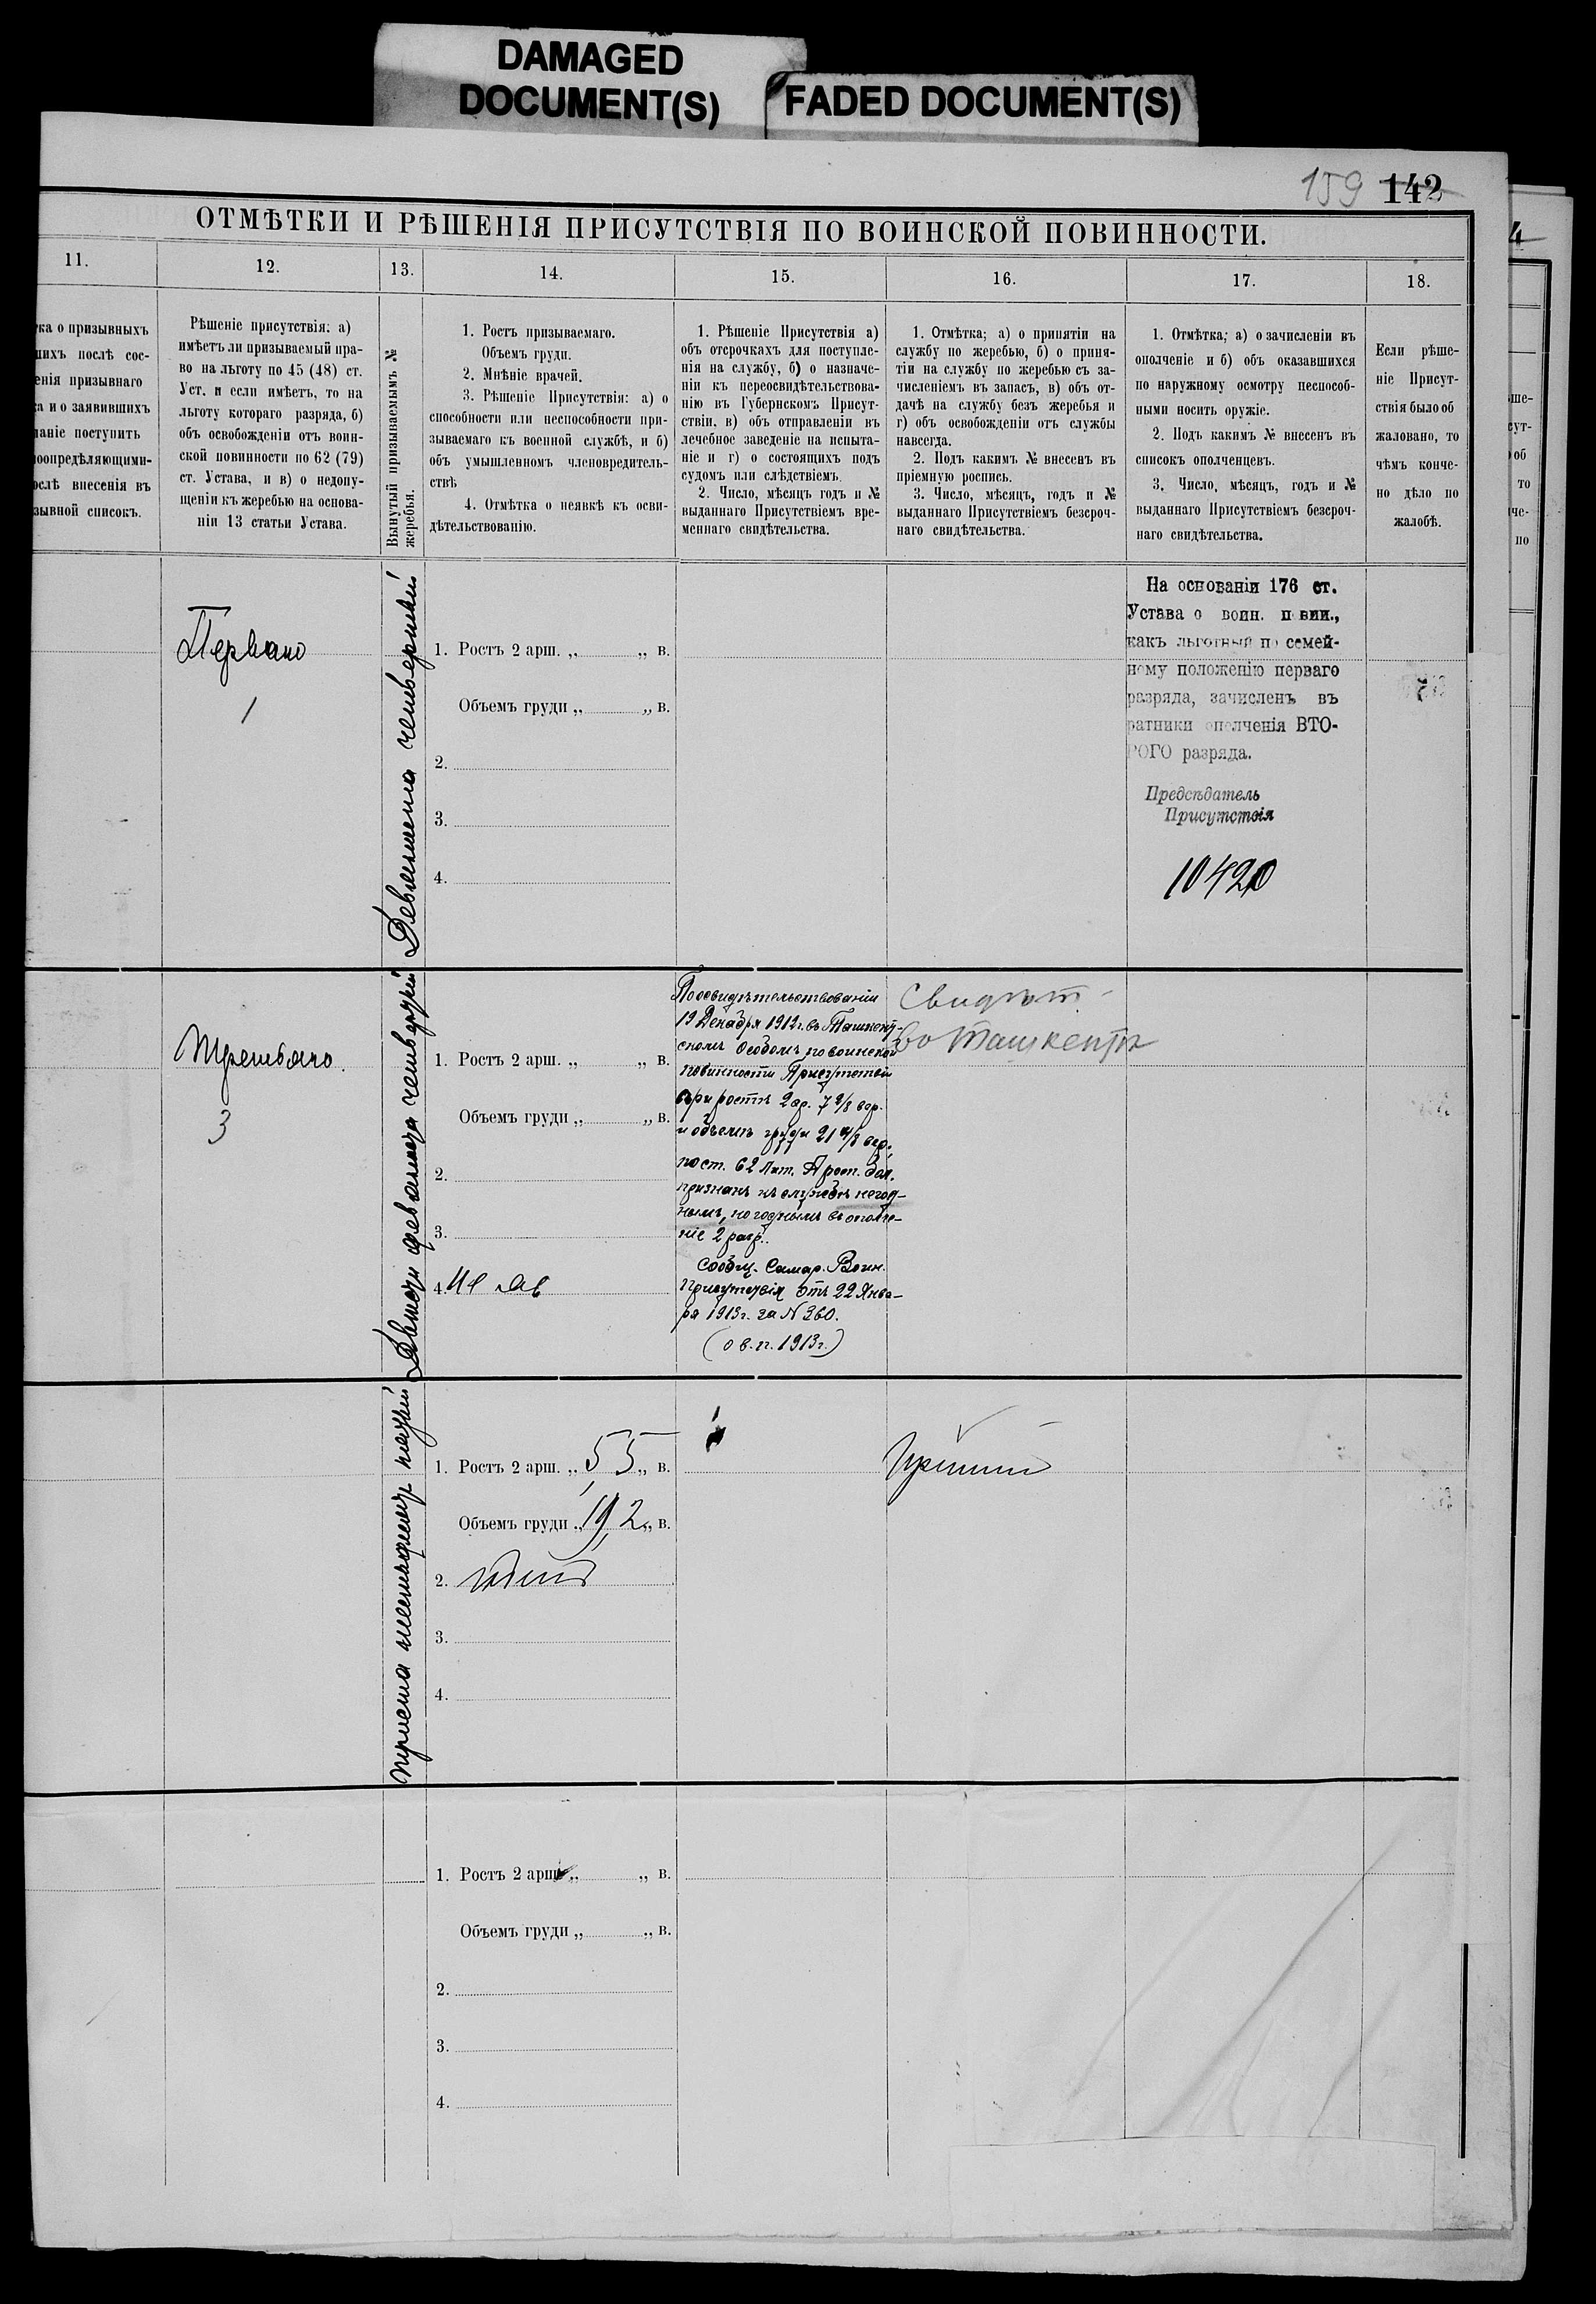 DAMAGED
DOCUMENT(S)
FADED DOCUMENT(S)
159 142
ОТМѢТКИ И РѢШЕНІЯ ПРИСУТСТВІЯ ПО ВОИНСКОЙ ПОВИННОСТИ.
11.
12.
13.
14.
15.
16.
17.
18.
ка о призывныхъ
ихъ послѣ сос-
енія призывнаго
а и о заявившихъ
аніе поступить
оопредѣляющими-
ослѣ внесенія въ
зывной списокъ.
Рѣшеніе присутствія: а)
имѣетъ ли призываемый пра-
во на льготу по 45 (48) ст.
Уст. и если имѣетъ, то на
льготу котораго разряда, б)
объ освобожденіи отъ воин-
ской повинности по 62 (79)
ст. Устава, и в) о недопу-
щеніи къ жеребью на основа-
ніи 13 статьи Устава.
Вынутый призываемымъ №
жеребья.
1. Ростъ призываемаго.
Объемъ груди.
2. Мнѣніе врачей.
3. Рѣшеніе Присутствія: а) о
способности или неспособности при-
зываемаго къ военной службѣ, и б)
объ умышленномъ членовредитель-
ствѣ
4. Отмѣтка о неявкѣ къ осви-
дѣтельствованію.
1. Рѣшеніе Присутствія а)
объ отсрочкахъ для поступле-
нія на службу, б) о назначе-
ніи къ переосвидѣтельствова-
нію въ Губернскомъ Присут-
ствіи, в) объ отправленіи въ
лечебное заведеніе на испыта-
ніе и г) о состоящихъ подъ
судомъ или слѣдствіемъ.
2. Число, мѣсяцъ годъ и №
выданнаго Присутствіемъ вре-
меннаго свидѣтельства.
1. Отмѣтка; а) о принятіи на
службу по жеребью, б) о приня-
тіи на службу по жеребью съ за-
численіемъ въ запасъ, в) объ от-
дачѣ на службу безъ жеребья и
г) объ освобожденіи отъ службы
навсегда.
2. Подъ какимъ № внесенъ въ
пріемную роспись.
3. Число, мѣсяцъ, годъ и №
выданнаго Присутствіемъ безсроч-
наго свидѣтельства.
1. Отмѣтка; а) о зачисленіи въ
ополченіе и б) объ оказавшихся
по наружному осмотру неспособ-
ными носить оружіе.
2. Подъ какимъ № внесенъ въ
списокъ ополченцевъ.
3. Число, мѣсяцъ, годъ и №
выданнаго Присутствіемъ безсроч-
наго свидѣтельства.
Если рѣше-
ніе Присут-
ствія было об
жаловано, то
чѣмъ конче-
но дѣло по
жалобѣ.
Перваго
1
Девяносто четвертый
1. Ростъ 2 арш. „ „ в.
Объемъ груди „ „ в.
2.
3.
4.
На основаніи 176 ст.
Устава о воин. повин.,
какъ льготный по семей-
ному положенію перваго
разряда, зачисленъ въ
ратники ополченія ВТО-
РОГО разряда.
Предсѣдатель
Присутствія
10420
Третьяго.
3
Двѣсти девяносто четвертый
1. Ростъ 2 арш. „ „ в.
Объемъ груди „ „ в.
2.
3.
4. Не яв
По освидѣтельствованіи
19 Декабря 1912 г. въ Ташкент-
скомъ Особомъ по воинской
повинности Присутствіи
при ростѣ 2 ар. 7 2/8 вер.
и объемѣ груди 21 4/8 вер.
по ст. 62 лит. А росп. бол.
признанъ къ службѣ негод-
нымъ, но годнымъ въ ополче-
ніе 2 разр..
Сообщ. Самар. Воин.
Присутствія отъ 22 Янва-
ря 1913 г. за N 360.
(о в. п. 1913 г.)
Свидѣт-
во Ташкентъ
Триста пятый
1. Ростъ 2 арш. „ 5 5 „ в.
Объемъ груди „ 19, 2 „ в.
2. годенъ
3.
4.
Принятъ
1. Ростъ 2 арш. „ „ в.
Объемъ груди „ „ в.
2.
3.
4.